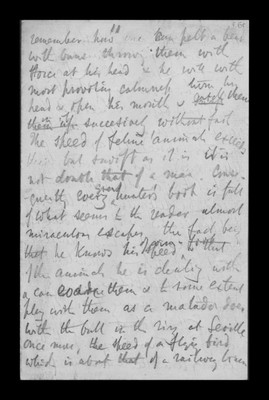 remember how one can pelt a bear
with buns throwing them with
force at his head & he will with
most provoking calmness turn his
head & open his mouth & catch them
successively without fail
The speed of feline animals exceeds
this but swift as it is it is
not double that of a man. Conse-
quently every great hunter's book is full
of what seems to the reader almost
miraculous escapes, the fact being
that he knows his own speed & that
of the animal he is dealing with
& can evade them & to some extent
play with them as a matador does
with the bull in the ring at Seville
once more, the speed of a flying bird
which is about that of a railway train